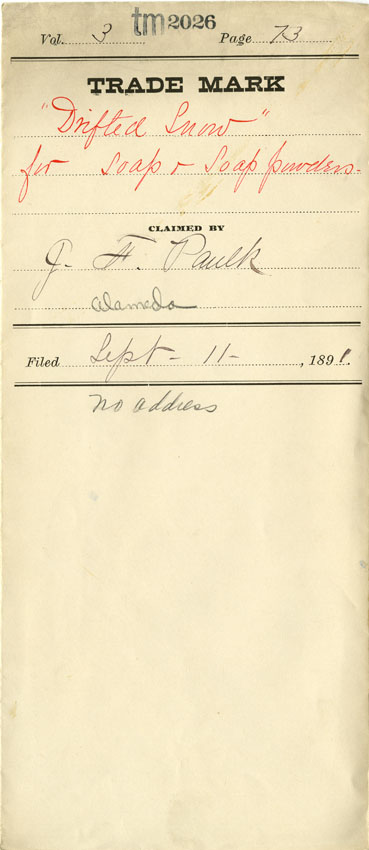 tm2026
Vol. 3 Page 73
TRADE MARK
"Drifted Snow"
for Soap & Soap powders.
CLAIMED BY
J. F. Paulk
Alameda
Filed Sept - 11 - , 1891.
no address